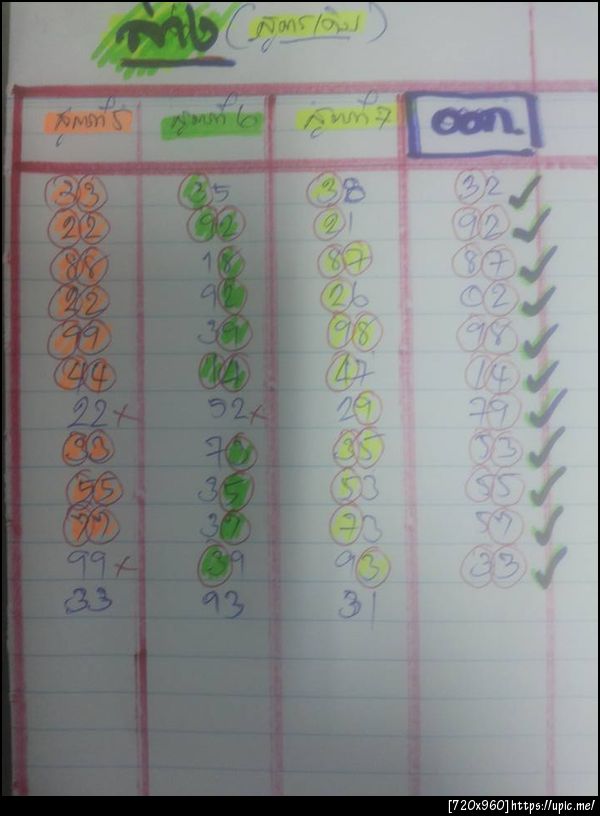 ล่าง (สูตรเดิม)
สูตรที่ 5 สูตรที่ 6 สูตรที่ 7 ออก.
33 35 38 32 ✓
22 92 21 92 ✓
88 18 87 87 ✓
22 92 26 02 ✓
99 39 98 98 ✓
44 14 47 14 ✓
22 × 52 × 29 79 ✓
33 73 35 53 ✓
55 35 53 55 ✓
77 37 73 57 ✓
99 × 39 93 33 ✓
33 93 31
[720x960]https://upic.me/